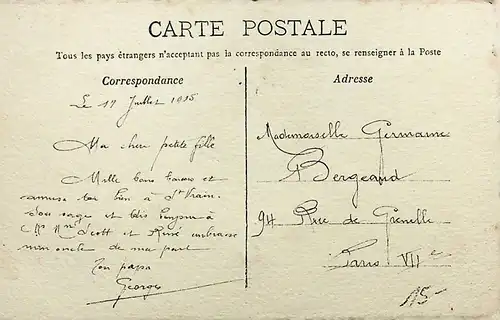 CARTE POSTALE
Tous les pays étrangers n'acceptant pas la correspondance au recto, se renseigner à la Poste
Correspondance
Le 17 Juillet 1915
Ma chère petite fille
Mille bons baisers et
amuse toi bien à St Vrain.
Sois sage et dis bonjour à
Mr Mme Scott et René embrasse
mon oncle de ma part
Ton papa
Georges
Adresse
Mademoiselle Germaine
Bergeaud
94 Rue de Grenelle
Paris VIIe
15-